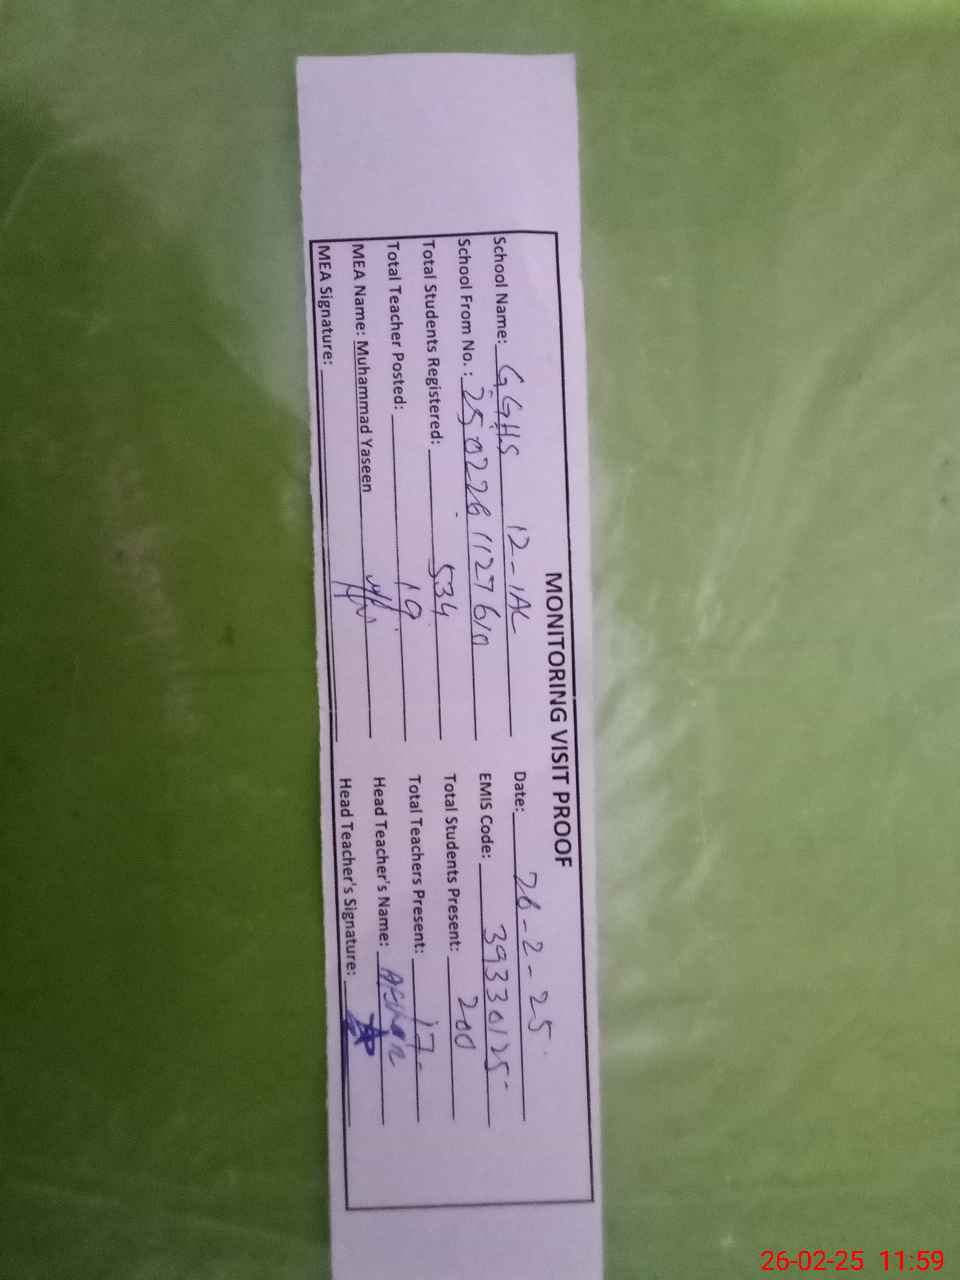 MONITORING VISIT PROOF
School Name: GGHS 12-1AL Date: 26-2-25
School From No.: 2502261127610 EMIS Code: 39330125
Total Students Registered: 534 Total Students Present: 200
Total Teacher Posted: 19 Total Teachers Present: 17
MEA Name: Muhammad Yaseen Head Teacher's Name:
MEA Signature: Head Teacher's Signature:
26-02-25 11:59